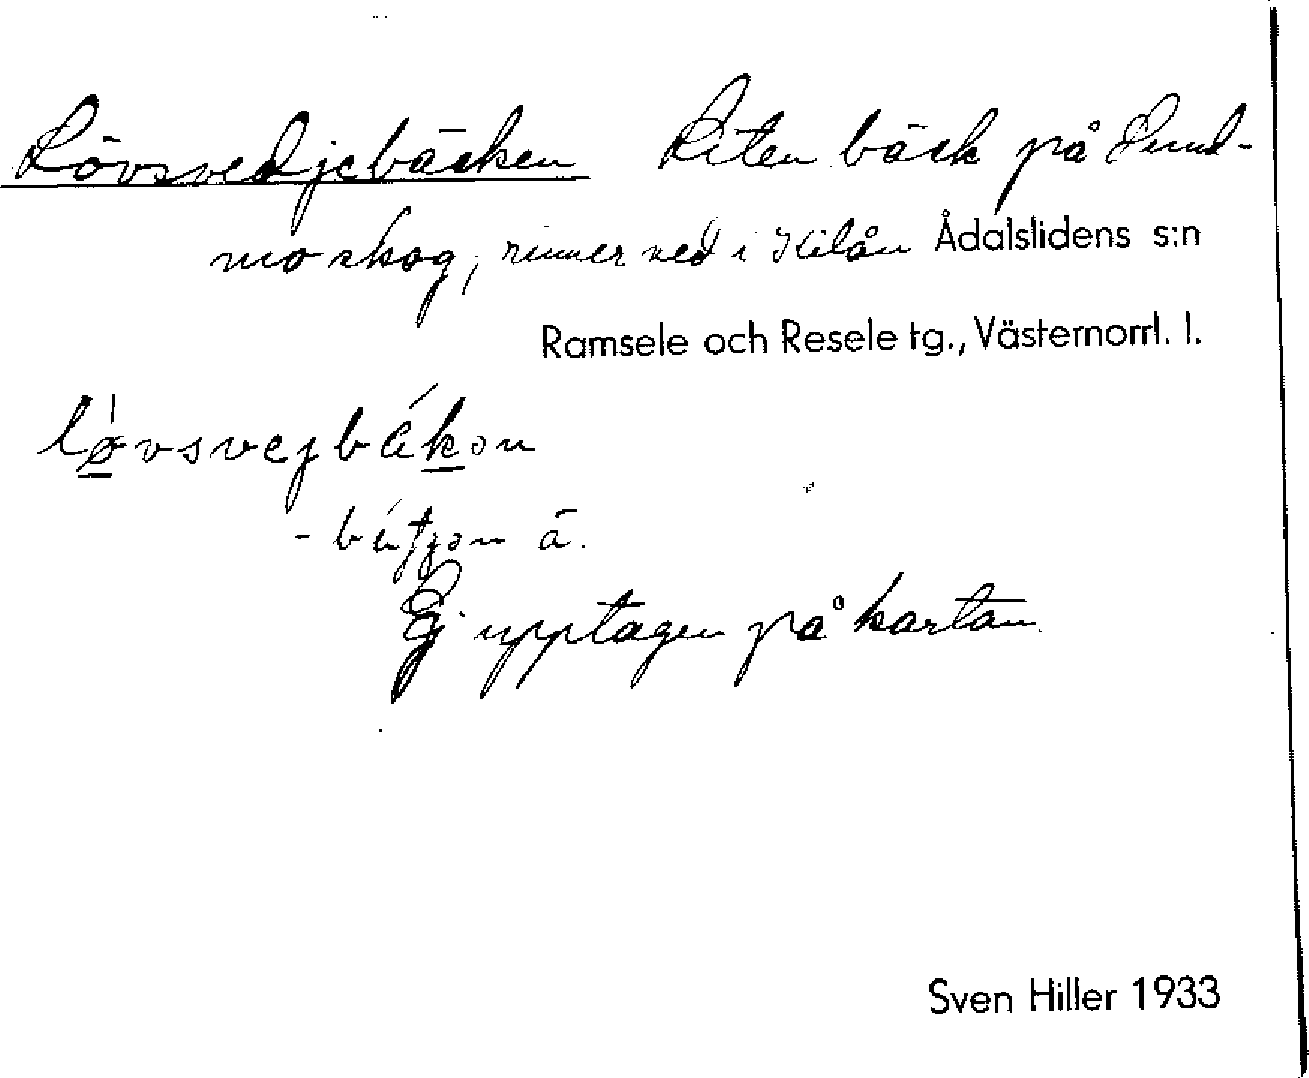 Lövsvedjebäcken Liten bäck på Sund-
mo skog, rinner ned i Kilån Ådalslidens s:n
Ramsele och Resele tg., Västernorrl. l.
lø̀vsvejbákən
ä.
Ej upptagen på kartan
Sven Hiller 1933